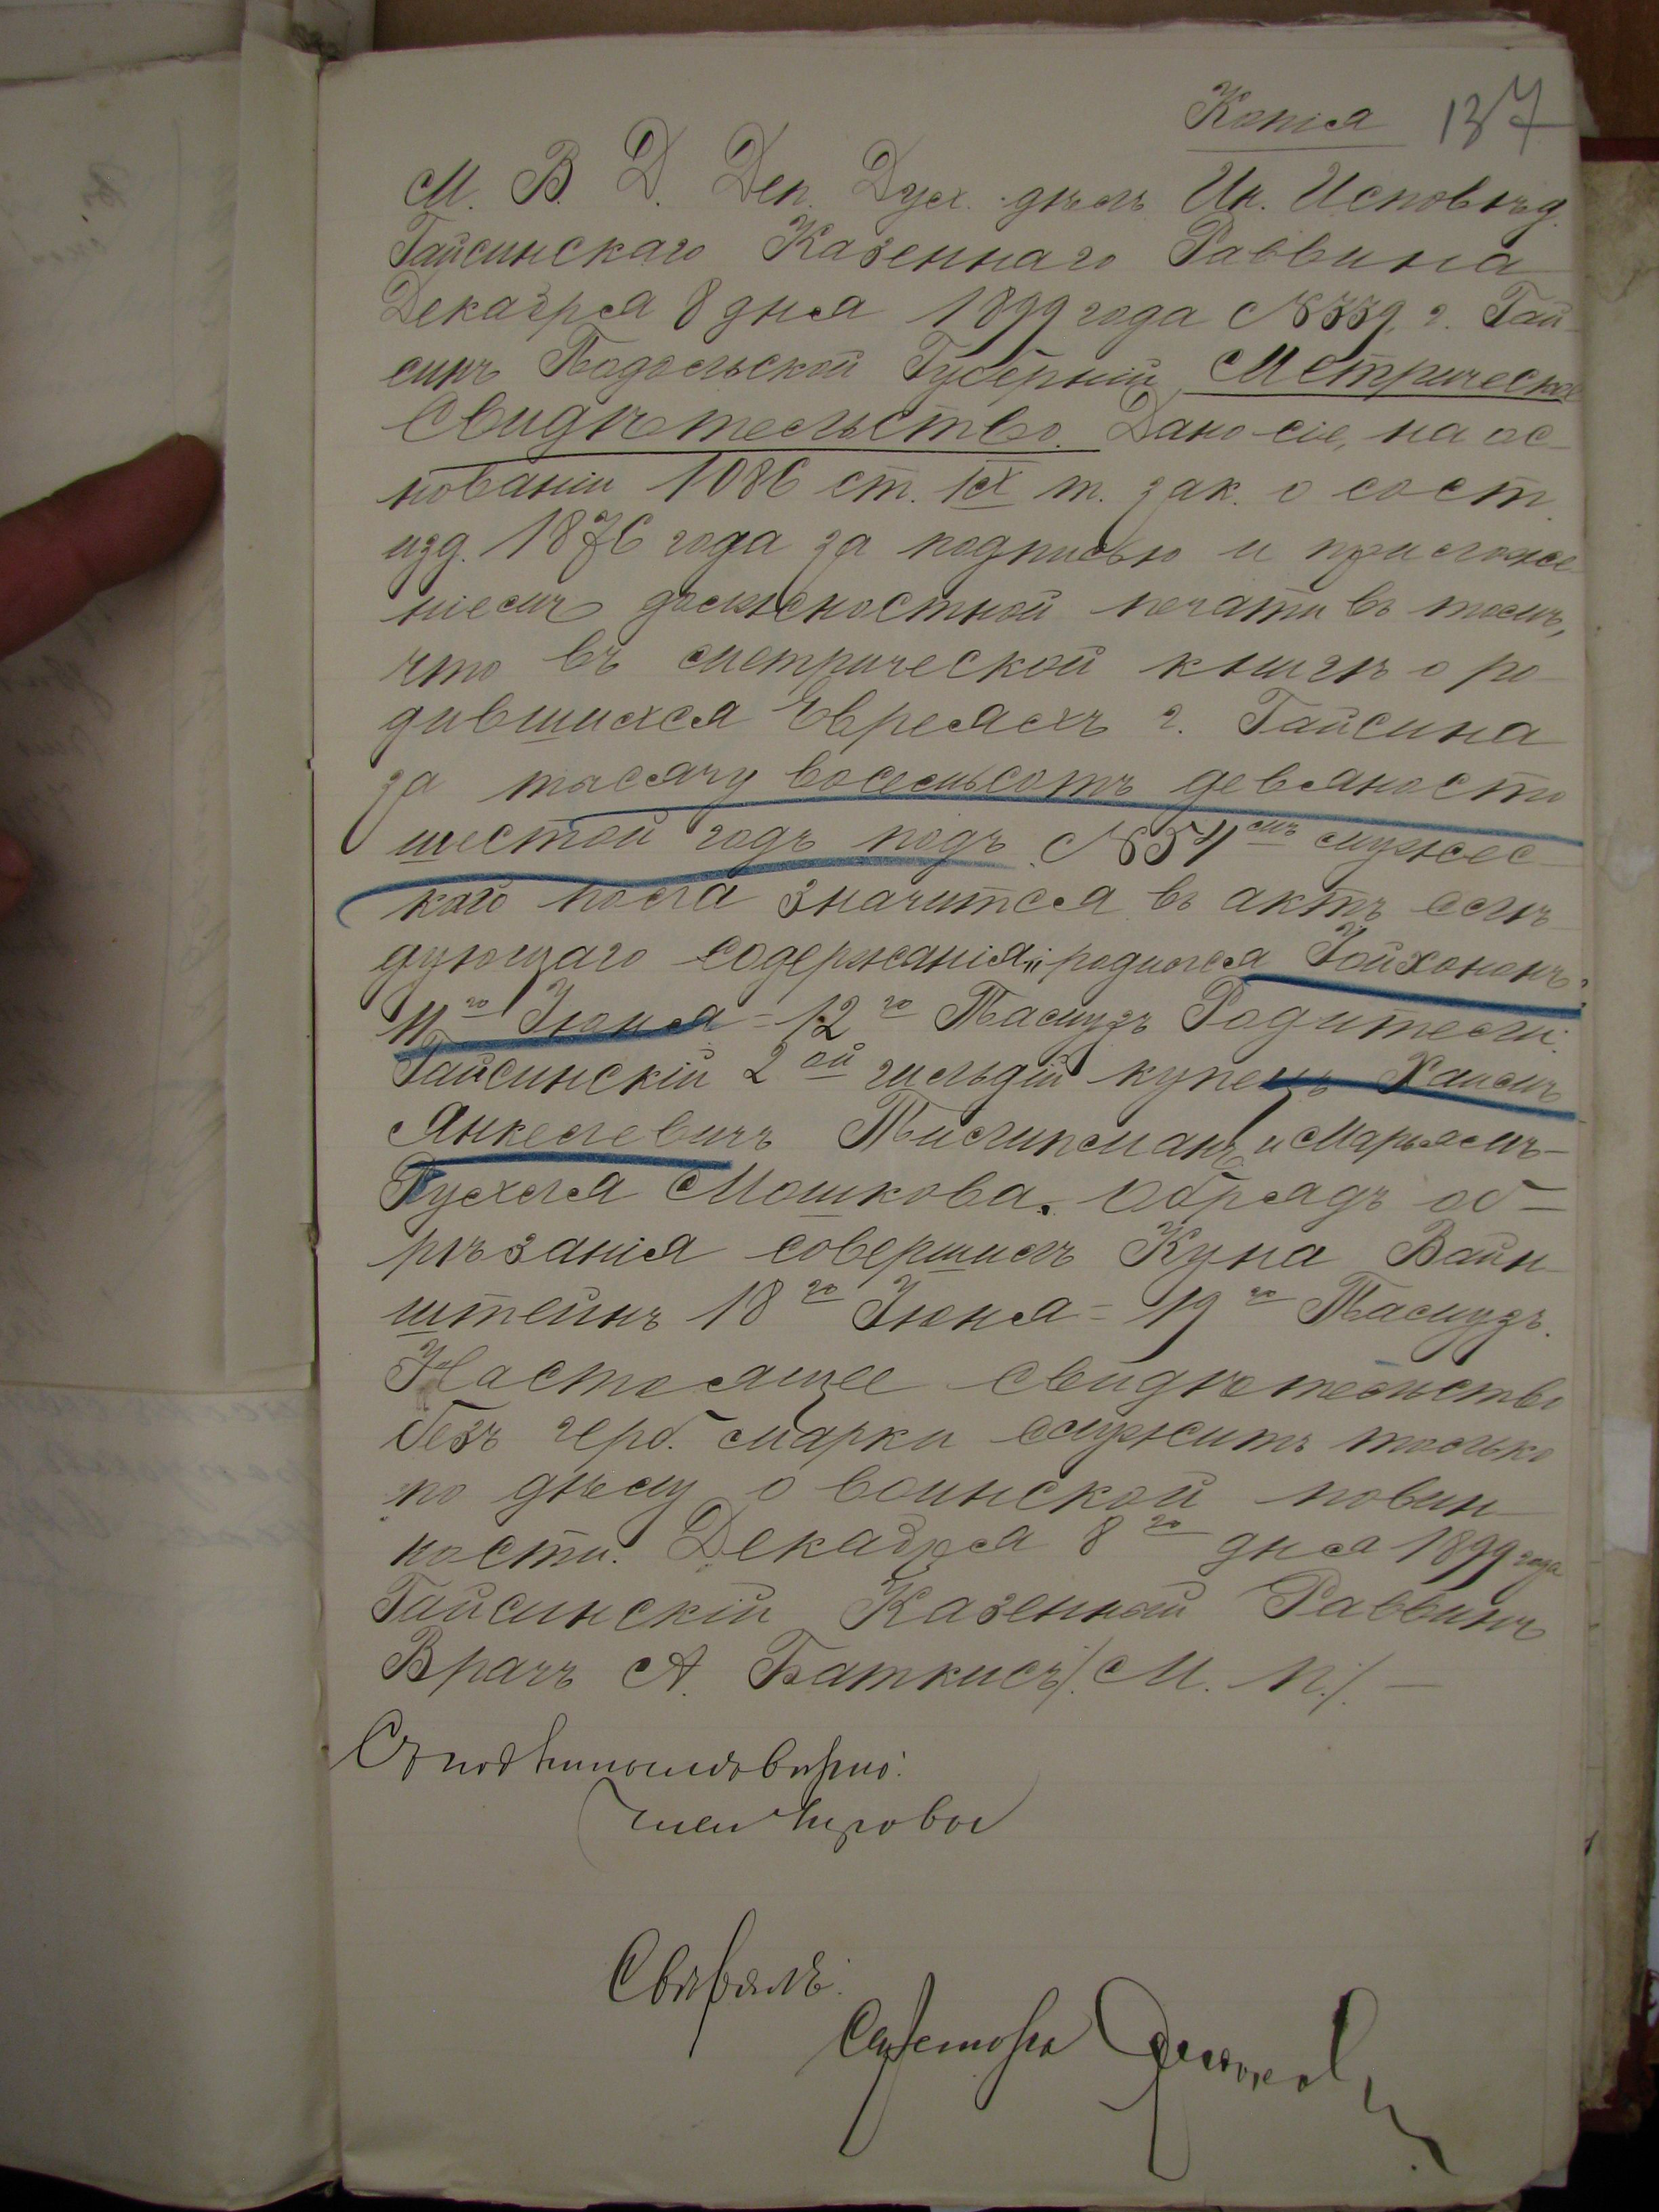 Копія 137
М. В. Д. Деп. Дух. дѣлъ Ин. Исповѣд.
Гайсинскаго Казеннаго Раввина
Декабря 8 дня 1899 года № 339, г. Гай-
синъ Подольской Губерніи Метрическое
Свидѣтельство. Дано сіе, на ос-
нованіи 1086 ст. IX т. зак. о сост.
изд. 1876 года за подписью и приложе-
ніемъ должностной печати въ томъ,
что въ метрической книгѣ о ро-
дившихся Евреяхъ г. Гайсина
за тысячу восемьсотъ девяносто
шестой годъ подъ № 54 мъ мужес-
каго пола значится въ актѣ слѣ-
дующаго содержанія: „родился Іойхононъ
11 го Іюня = 12 го Тамузъ Родители:
Гайсинскій 2 ой гильдіи купецъ Хаимъ
Янкелевичъ Тислисманъ и Марьямъ-
Рухля Мошкова. Обрядъ об-
рѣзанія совершилъ Куна Вайн-
штейнъ 18 го Іюня = 19 го Тамузъ.
Настоящее свидѣтельство
безъ герб. марки служитъ только
по дѣлу о воинской повин-
ности. Декабря 8 го дня 1899 года
Гайсинскій Казенный Раввинъ
Врачъ А. Баткисъ /М. П./ —
Съ подлиннымъ вѣрно:
Свѣрялъ: